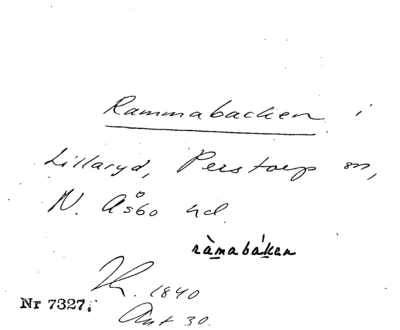 Rammabacken i
Lillaryd, Perstorp sn,
N. Åsbo hd.
ràmabákен
Th. 1840
Ant 30.
Nr 7327.